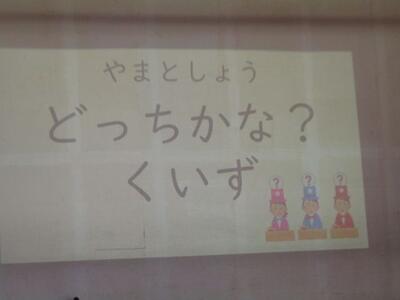 やまとしょう
どっちかな？
くいず
? ? ?